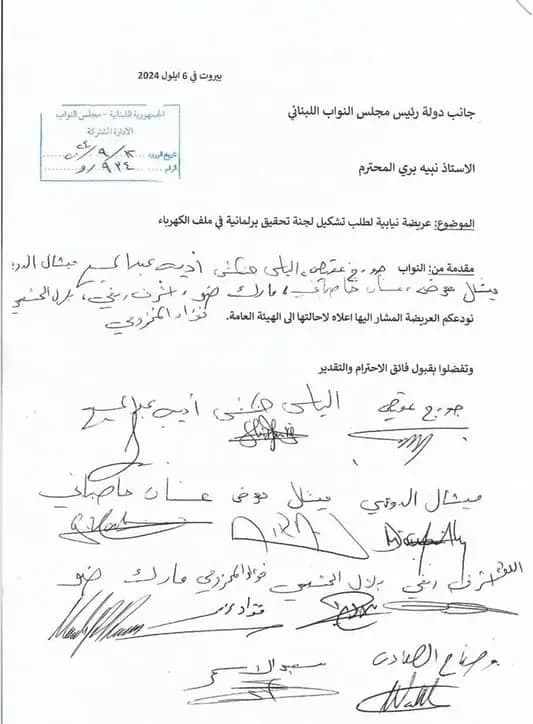 بيروت في 6 ايلول 2024
جانب دولة رئيس مجلس النواب اللبناني
الجمهورية اللبنانية - مجلس النواب
الادارة المشتركة
تاريخ الورود
الرقم ٩٣٤/و
الاستاذ نبيه بري المحترم
الموضوع: عريضة نيابية لطلب تشكيل لجنة تحقيق برلمانية في ملف الكهرباء
مقدمة من: النواب جورج عقيص، الياس حنكش، أديب عبد المسيح، ميشال الدويهي
ميشال معوض، غسان حاصباني، مارك ضو، اشرف ريفي، بلال الحشيمي
فؤاد المخزومي
نودعكم العريضة المشار اليها اعلاه لاحالتها الى الهيئة العامة.
وتفضلوا بقبول فائق الاحترام والتقدير
جورج عقيص الياس حنكش أديب عبد المسيح
ميشال الدويهي ميشال معوض غسان حاصباني
اشرف ريفي بلال الحشيمي فؤاد المخزومي مارك ضو
وضاح الصادق